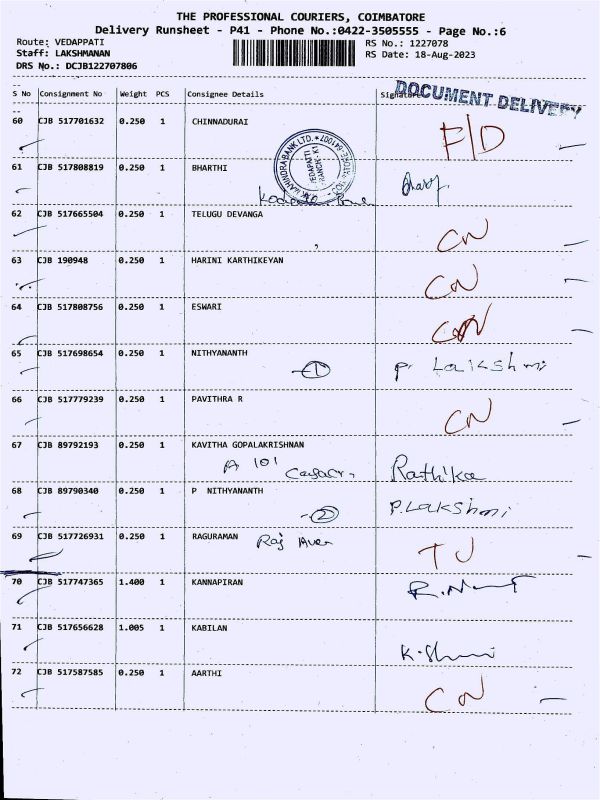 THE PROFESSIONAL COURIERS, COIMBATORE
Delivery Runsheet - P41 - Phone No.:0422-3505555 - Page No.:6
Route: VEDAPPATI
RS No.: 1227078
Staff: LAKSHMANAN
RS Date: 18-Aug-2023
DRS No.: DCJB122707806
S No Consignment No Weight PCS Consignee Details Signature
DOCUMENT DELIVERY
--
60 CJB 517701632 0.250 1 CHINNADURAI F/D
61 CJB 517808819 0.250 1 BHARTHI
VEDAPPATI
62 CJB 517665504 0.250 1 TELUGU DEVANGA CN
63 CJB 190948 0.250 1 HARINI KARTHIKEYAN CN
64 CJB 517808756 0.250 1 ESWARI CN
65 CJB 517698654 0.250 1 NITHYANANTH
1 P. Lakshmi
66 CJB 517779239 0.250 1 PAVITHRA R CN
67 CJB 89792193 0.250 1 KAVITHA GOPALAKRISHNAN
A 101 Rathika
68 CJB 89790340 0.250 1 P NITHYANANTH P. Lakshmi
2
69 CJB 517726931 0.250 1 RAGURAMAN Raj TJ
70 CJB 517747365 1.400 1 KANNAPIRAN
71 CJB 517656628 1.005 1 KABILAN
72 CJB 517587585 0.250 1 AARTHI CN